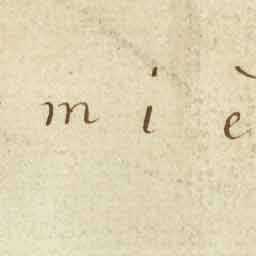 m i è